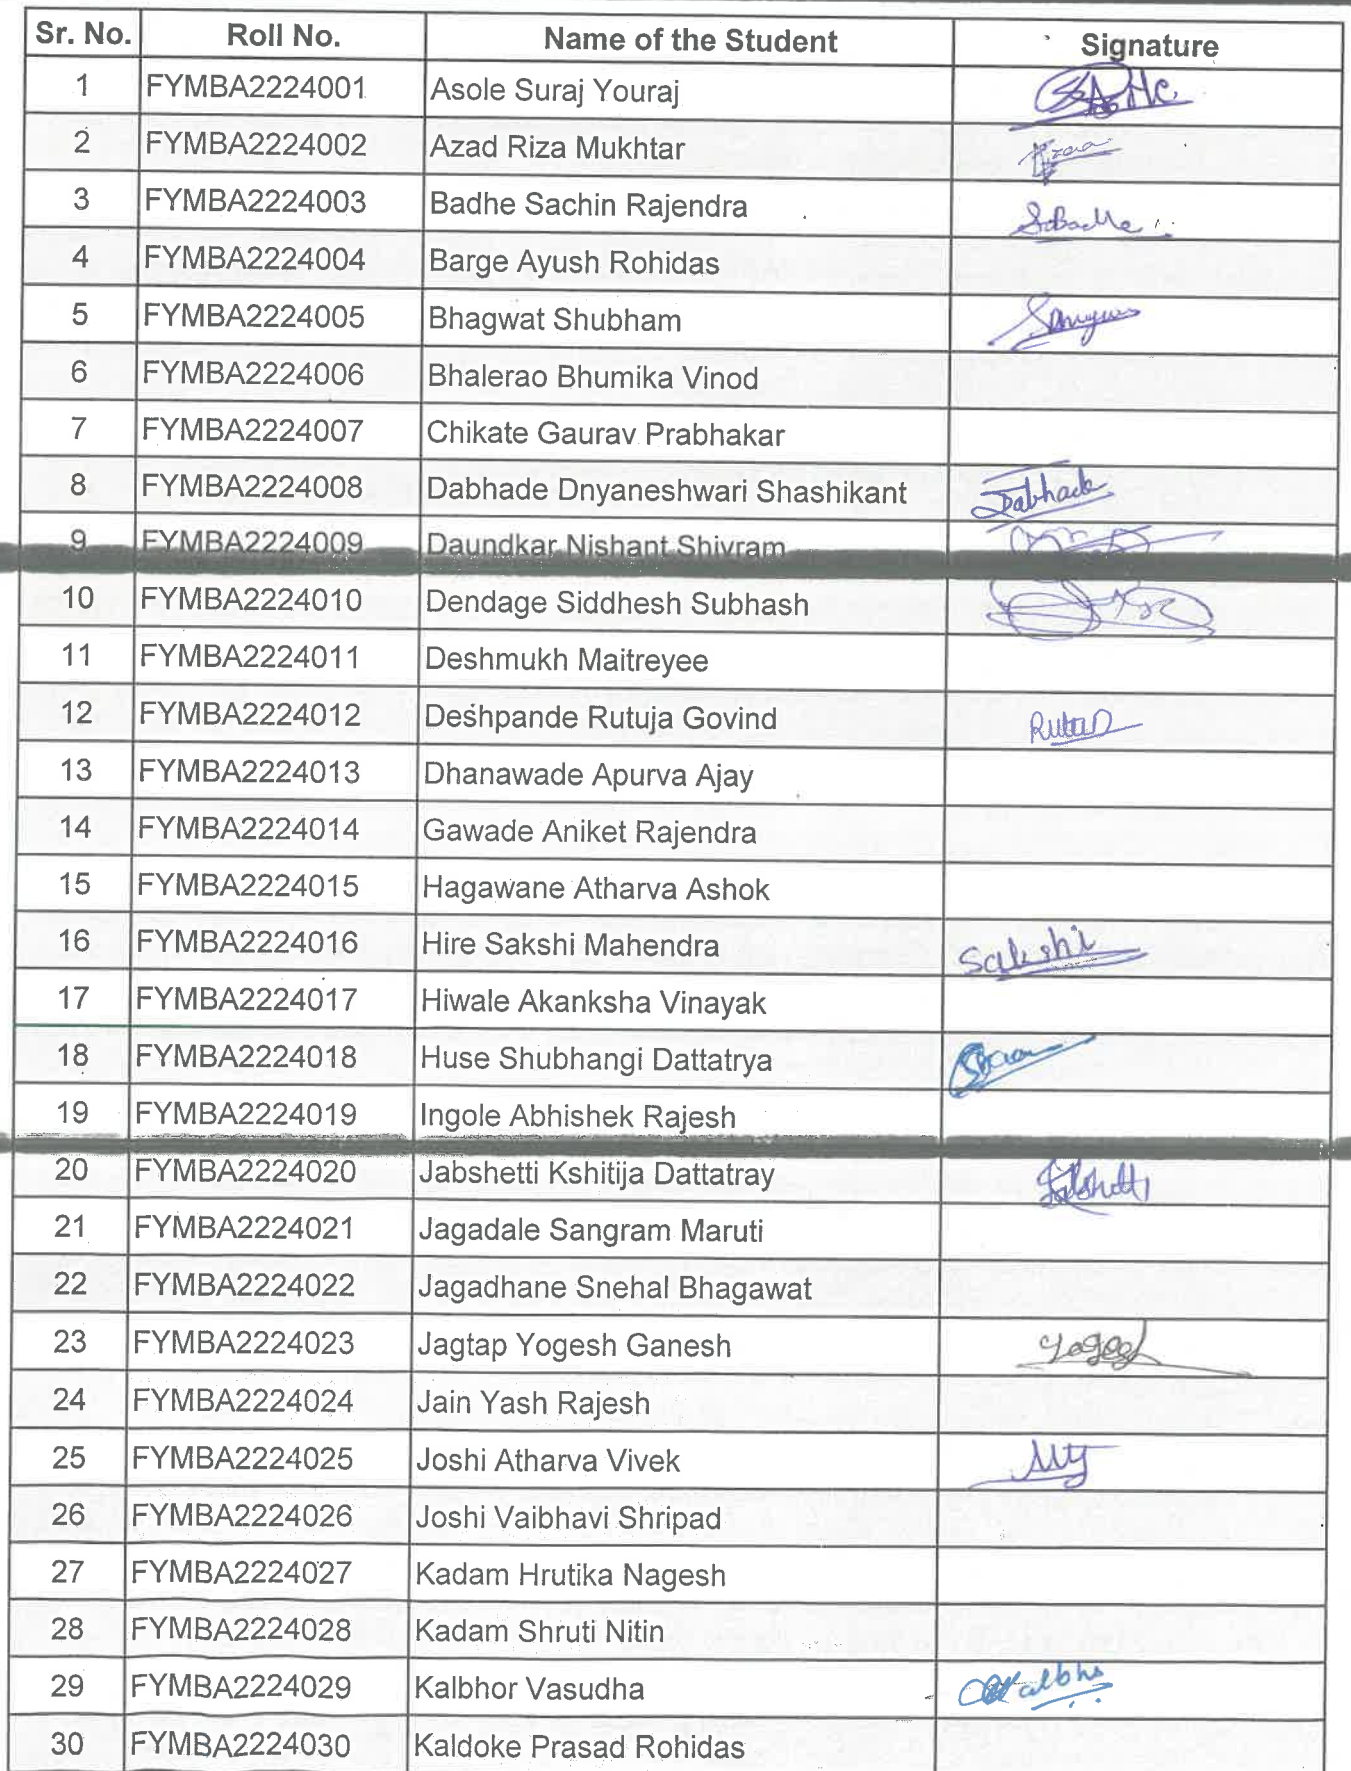 Sr. No. Roll No. Name of the Student Signature
1 FYMBA2224001 Asole Suraj Youraj
2 FYMBA2224002 Azad Riza Mukhtar
3 FYMBA2224003 Badhe Sachin Rajendra
4 FYMBA2224004 Barge Ayush Rohidas
5 FYMBA2224005 Bhagwat Shubham
6 FYMBA2224006 Bhalerao Bhumika Vinod
7 FYMBA2224007 Chikate Gaurav Prabhakar
8 FYMBA2224008 Dabhade Dnyaneshwari Shashikant Dabhade
9 FYMBA2224009 Daundkar Nishant Shivram
10 FYMBA2224010 Dendage Siddhesh Subhash
11 FYMBA2224011 Deshmukh Maitreyee
12 FYMBA2224012 Deshpande Rutuja Govind
13 FYMBA2224013 Dhanawade Apurva Ajay
14 FYMBA2224014 Gawade Aniket Rajendra
15 FYMBA2224015 Hagawane Atharva Ashok
16 FYMBA2224016 Hire Sakshi Mahendra Sakshi
17 FYMBA2224017 Hiwale Akanksha Vinayak
18 FYMBA2224018 Huse Shubhangi Dattatrya
19 FYMBA2224019 Ingole Abhishek Rajesh
20 FYMBA2224020 Jabshetti Kshitija Dattatray Jabshetti
21 FYMBA2224021 Jagadale Sangram Maruti
22 FYMBA2224022 Jagadhane Snehal Bhagawat
23 FYMBA2224023 Jagtap Yogesh Ganesh Yogesh
24 FYMBA2224024 Jain Yash Rajesh
25 FYMBA2224025 Joshi Atharva Vivek
26 FYMBA2224026 Joshi Vaibhavi Shripad
27 FYMBA2224027 Kadam Hrutika Nagesh
28 FYMBA2224028 Kadam Shruti Nitin
29 FYMBA2224029 Kalbhor Vasudha
30 FYMBA2224030 Kaldoke Prasad Rohidas